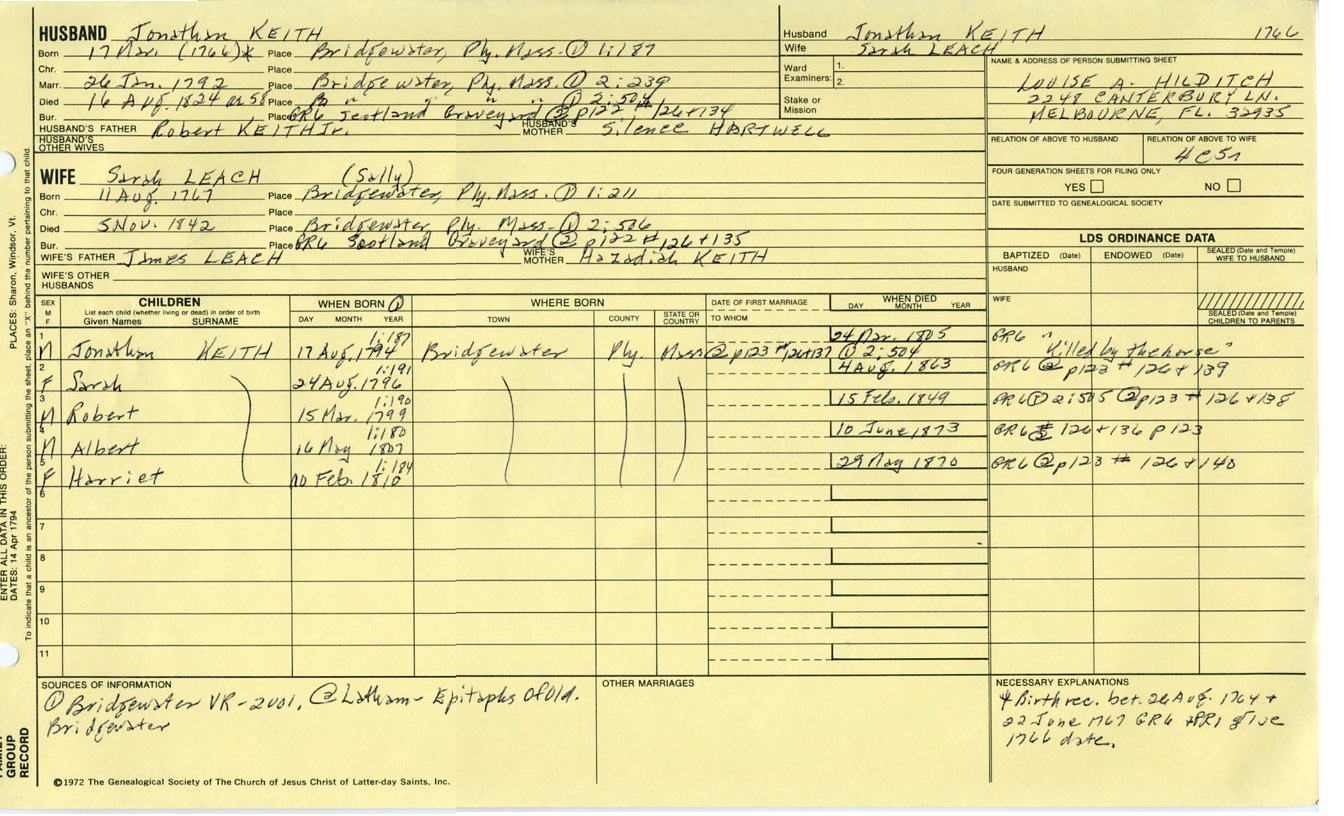 HUSBAND Jonathan KEITH
Born 17 Mar. (1766)* Place Bridgewater, Ply. Mass. ① 1:187
Chr. Place
Marr. 26 Jan. 1792 Place Bridgewater, Ply. Mass. ① 2:239
Died 16 Aug. 1824 or 58 Place B " " " ① 2:504
Bur. Place GR6 Scotland Graveyard ② p122 # 126+134
HUSBAND'S FATHER Robert KEITH Jr. HUSBAND'S MOTHER Silence HARTWELL
HUSBAND'S OTHER WIVES
Husband Jonathan KEITH 1766
Wife Sarah LEACH
Ward Examiners: 1.
2.
Stake or Mission
NAME & ADDRESS OF PERSON SUBMITTING SHEET
LOUISE A. HILDITCH
2248 CANTERBURY LN.
MELBOURNE, FL. 32935
RELATION OF ABOVE TO HUSBAND RELATION OF ABOVE TO WIFE
4c5r
FOUR GENERATION SHEETS FOR FILING ONLY
YES NO
DATE SUBMITTED TO GENEALOGICAL SOCIETY
WIFE Sarah LEACH (Sally)
Born 11 Aug. 1767 Place Bridgewater, Ply. Mass. ① 1:211
Chr. Place
Died 5 Nov. 1842 Place Bridgewater Ply. Mass. ① 2:506
Bur. Place GR6 Scotland Graveyard ② p122 # 126+135
WIFE'S FATHER James LEACH WIFE'S MOTHER Hazadiah KEITH
WIFE'S OTHER HUSBANDS
LDS ORDINANCE DATA
BAPTIZED (Date) ENDOWED (Date) SEALED (Date and Temple) WIFE TO HUSBAND
HUSBAND
WIFE
SEALED (Date and Temple) CHILDREN TO PARENTS
SEX M F CHILDREN WHEN BORN ① WHERE BORN DATE OF FIRST MARRIAGE WHEN DIED
List each child (whether living or dead) in order of birth
Given Names SURNAME DAY MONTH YEAR TOWN COUNTY STATE OR COUNTRY TO WHOM DAY MONTH YEAR
1 1:187 24 Mar. 1805 GR6
M Jonathan KEITH 17 Aug. 1794 Bridgewater Ply. Mass ② p123 # 126+137 ① 2:504 "Killed by the horse"
2 1:191 4 Aug. 1863 GR6 ② p123 # 126+139
F Sarah 24 Aug. 1796
3 1:190 15 Feb. 1849 GR6 ① 2:505 ② p123 # 126+138
M Robert 15 Mar. 1799
4 1:180 10 June 1873 GR6 # 126+136 p123
M Albert 16 May 1807
5 1:184 29 May 1870 GR6 ② p123 # 126+140
F Harriet 10 Feb. 1810
6
7
8
9
10
11
SOURCES OF INFORMATION
① Bridgewater VR-2vol. ② Latham- Epitaphs Of Old.
Bridgewater
OTHER MARRIAGES
NECESSARY EXPLANATIONS
* Birth rec. bet. 26 Aug. 1764 +
22 June 1767 GR6 + PR1 give
1766 date.
©1972 The Genealogical Society of The Church of Jesus Christ of Latter-day Saints, Inc.
FAMILY GROUP RECORD
ENTER ALL DATA IN THIS ORDER:
DATES: 14 Apr 1794
PLACES: Sharon, Windsor, Vt.
To indicate that a child is an ancestor of the person submitting the sheet, place an "X" behind the number pertaining to that child.